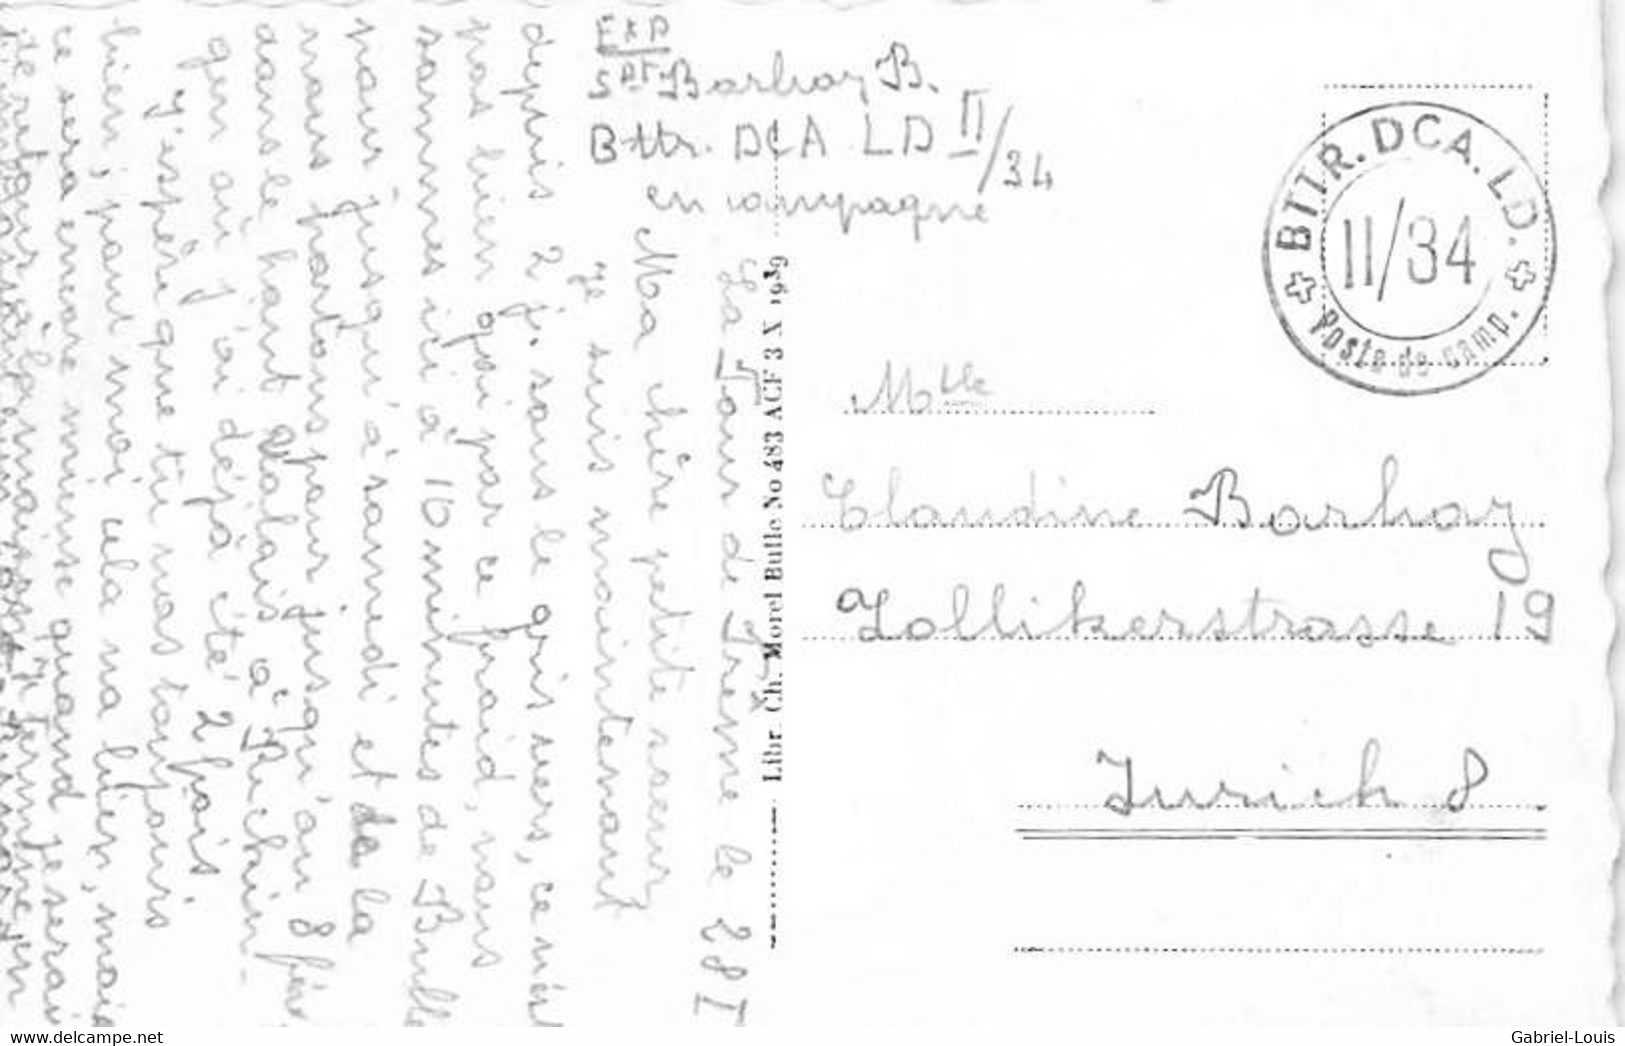 EXP
Sdt. Barhay B.
Bttr. DCA LD II/34
en campagne
BTTR. DCA. LD.
II/34
Poste de camp.
La Tour de Trême le 28 I
Ma chère petite soeur
Je suis maintenant
depuis 2 j. sous le gris vers, ce n'est
pas bien gai par ce froid, nous
sommes ici à 10 minutes de Bulle
pour jusqu'à samedi et de la
nous partons pour jusqu'au 8 fév
dans le haut Valais à
gen où j'ai déjà été 2 fois
J'espère que tu vas toujours
bien, pour moi cela va bien, mais
ce sera encore mieux quand je serai
de retour à la maison. Je termine en
Libr. Ch. Morel Bulle No 483 ACF 3 X 1939
Mlle
Claudine Barhay
Zollikerstrasse 19
Zurich 8
www.delcampe.net
Gabriel-Louis